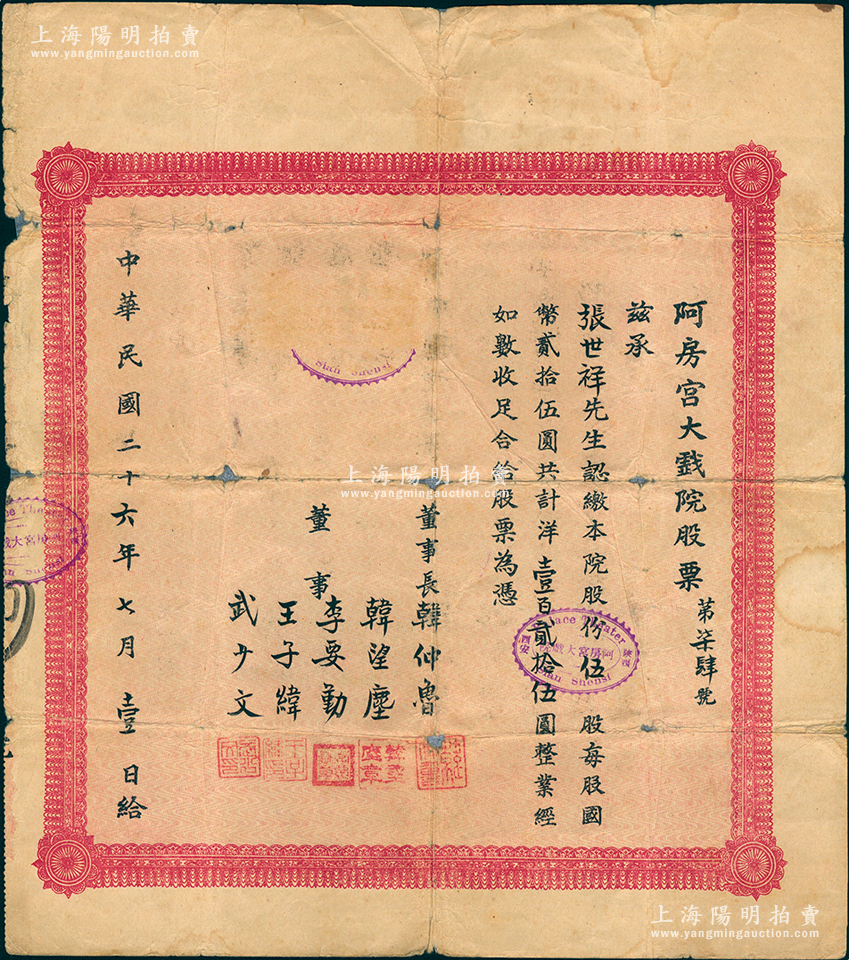 上海陽明拍賣
www.yangmingauction.com
阿房宮大戲院股票
第柒肆號
茲承
張世祥先生認繳本院股份伍股每股國
幣貳拾伍圓共計洋壹百貳拾伍圓整業經
如數收足合給股票為憑
董事長韓仲魯
韓望塵
董事李要勤
王子緯
武少文
中華民國二十六年七月壹日給
Palace Theater
西安
阿房宮大戲院
陝西
Sian Shensi
Sian Shensi
Sian Shensi
上海陽明拍賣
www.yangmingauction.com
上海陽明拍賣
www.yangmingauction.com